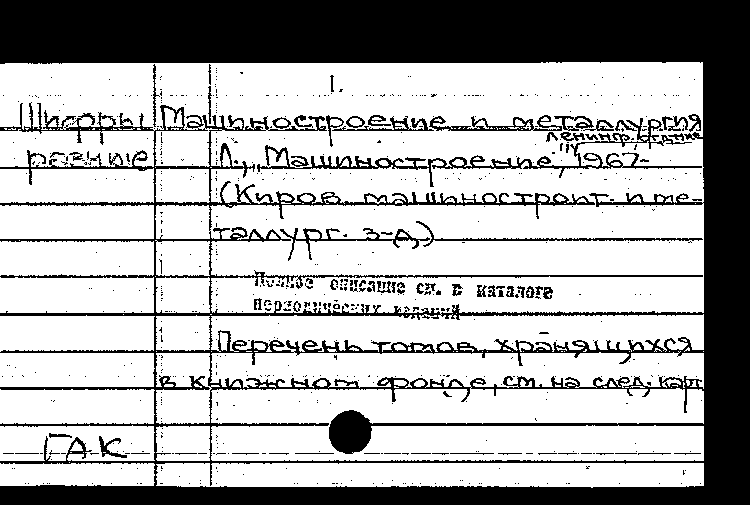 1.
Шифры Машиностроение и металлургия
Ленингр. отд-ние
разные Л., „Машиностроение", 1967-
(Киров. машиностроит. и ме-
таллург. з-д)
Полное описание см. в каталоге
периодических изданий
Перечень томов, хранящихся
в книжном фонде, см. на след. карт.
ГАК